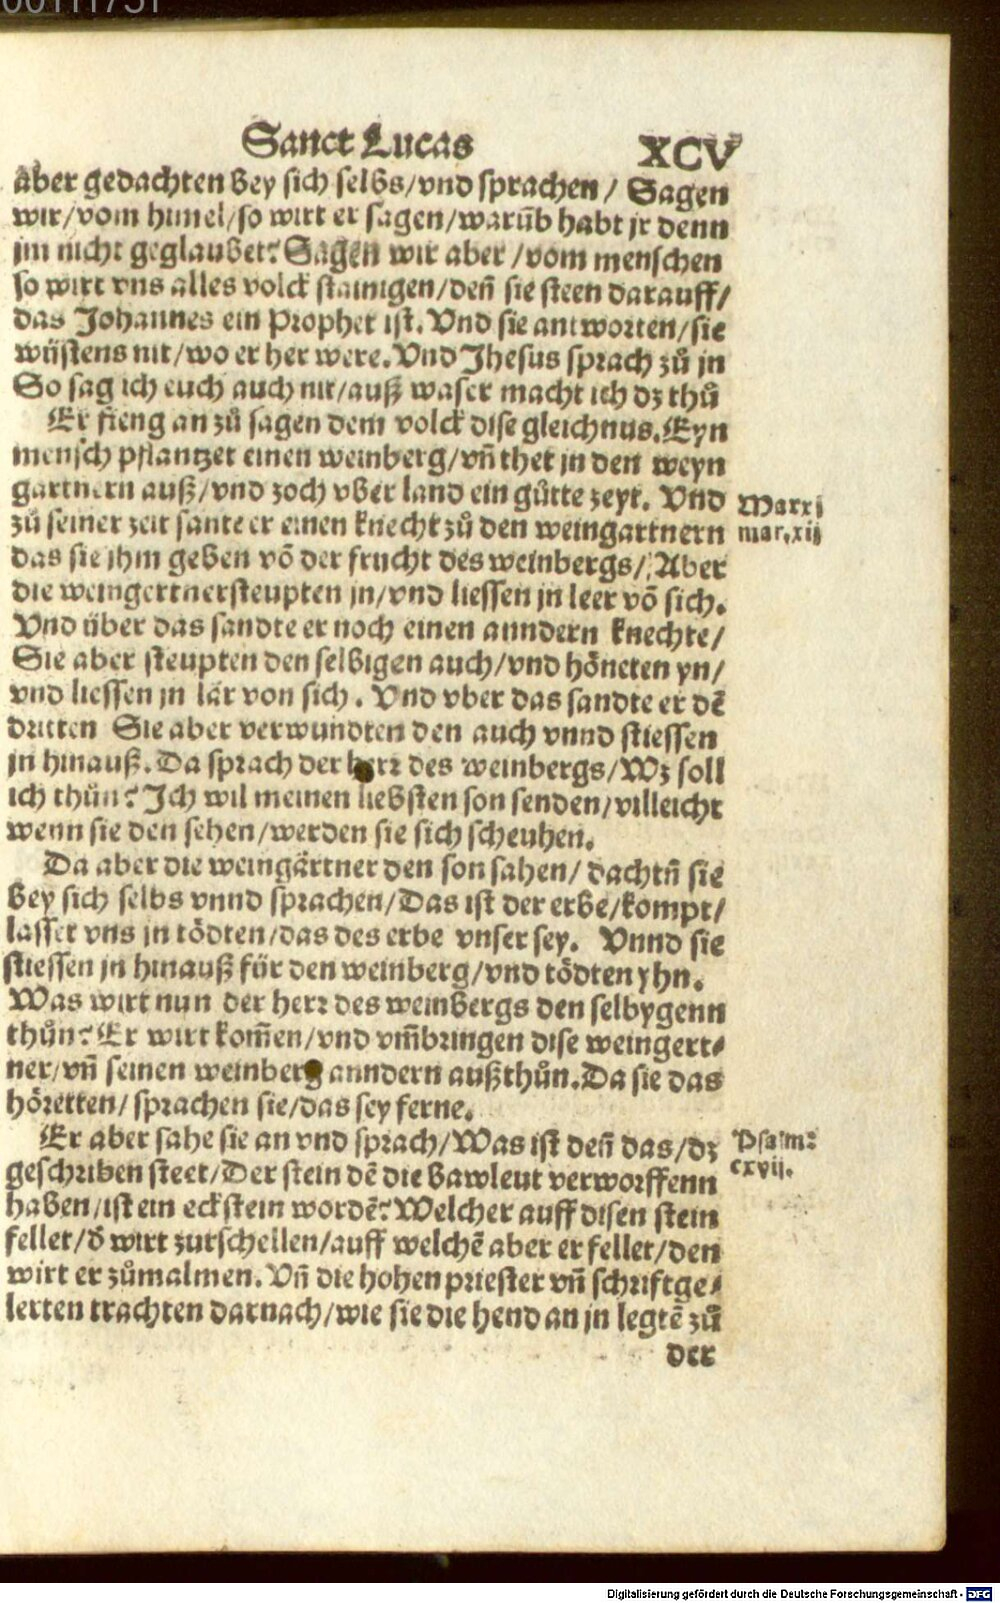 Sanct Lucas XCV
aber gedachten bey sich selbs/vnd sprachen/ Sagen
wir/vom himel/so wirt er sagen/warūb habt jr denn
jm nicht geglaubet? Sagen wir aber/vom menschen
so wirt vns alles volck stainigen/deñ sie steen darauff/
das Johannes ein Prophet ist. Vnd sie antworten/sie
wüstens nit/wo er her were. Vnd Jhesus sprach zů jn
So sag ich euch auch nit/auß waser macht ich dz thů
Er fieng an zů sagen dem volck dise gleichnus. Eyn
mensch pflantzet einen weinberg/vñ thet jn den weyn
gartnern auß/vnd zoch vber land ein gůtte zeyt. Vnd
Marxi
zů seiner zeit sante er einen knecht zů den weingartnern
mar.xij
das sie jhm geben võ der frucht des weinbergs/ Aber
die weingertner steupten jn/vnd liessen jn leer võ sich.
Vnd über das sandte er noch einen anndern knechte/
Sie aber steupten den selbigen auch/vnd höneten yn/
vnd liessen jn lär von sich. Vnd vber das sandte er dē
dritten Sie aber verwundten den auch vnnd stiessen
jn hinauß. Da sprach der herr des weinbergs/Wz soll
ich thůn? Jch wil meinen liebsten son senden/villeicht
wenn sie den sehen/werden sie sich scheuhen.
Da aber die weingärtner den son sahen/ dachtñ sie
bey sich selbs vnnd sprachen/Das ist der erbe/kompt/
lasset vns jn tödten/das des erbe vnser sey. Vnnd sie
stiessen jn hinauß für den weinberg/vnd tödten yhn.
Was wirt nun der herr des weinbergs den selbygenn
thůn? Er wirt kom̄en/vnd vm̄bringen dise weingert-
ner/vñ seinen weinberg anndern außthůn. Da sie das
höretten/ sprachen sie/das sey ferne.
Er aber sahe sie an vnd sprach/Was ist deñ das/dz
Psalm:
geschriben steet/Der stein dē die bawleut verworffenn
cxvij.
haben/ist ein eckstein wordē? Welcher auff disen stein
fellet/d̓ wirt zurschellen/auff welchē aber er fellet/den
wirt er zůmalmen. Vñ die hohen priester vñ schriftge-
lerten trachten darnach/wie sie die hend an jn legtē zů
der
Digitalisierung gefördert durch die Deutsche Forschungsgemeinschaft - DFG